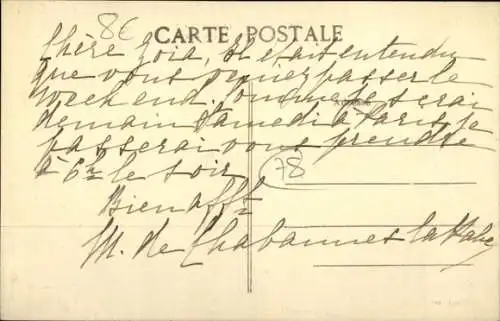 8€
CARTE POSTALE
Chère Zoïa, Il était entendu
que vous veniez passer le
week end. Comme je serai
demain Samedi à Paris je
passerai vous prendre
à 6h le soir
78
Bien affte
M. de Chabannes la Palice